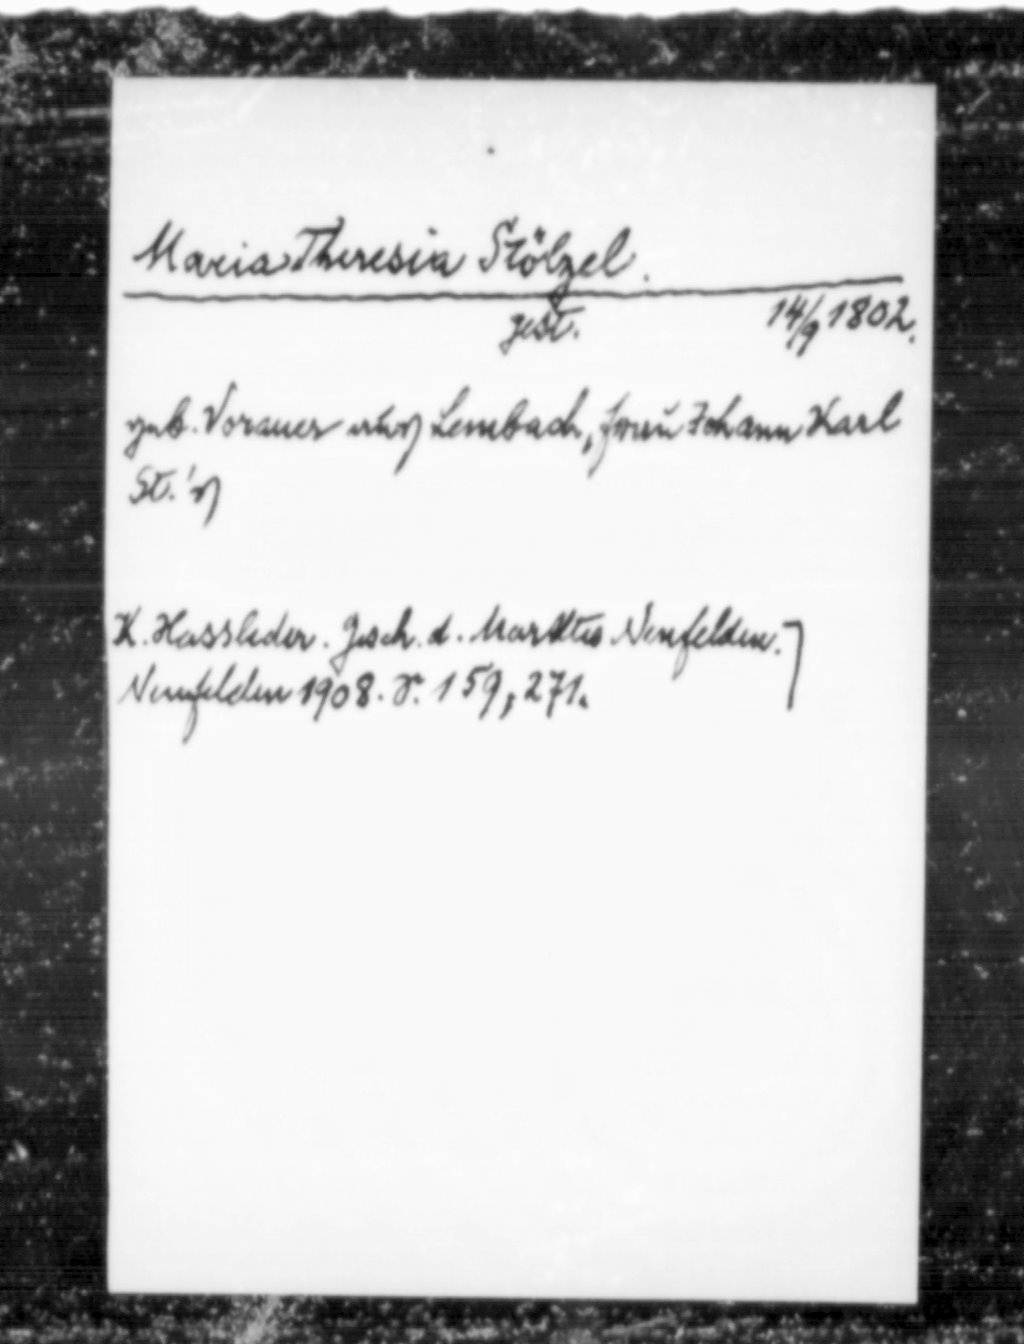 Maria Theresia Stölzel.
gest. 14/9 1802.
geb. Vorauer Lembach, Frau Johann Karl
St.'s
K. Hassleder. Gesch. d. Marktes Neufelden.
Neufelden 1908. S. 159, 271.